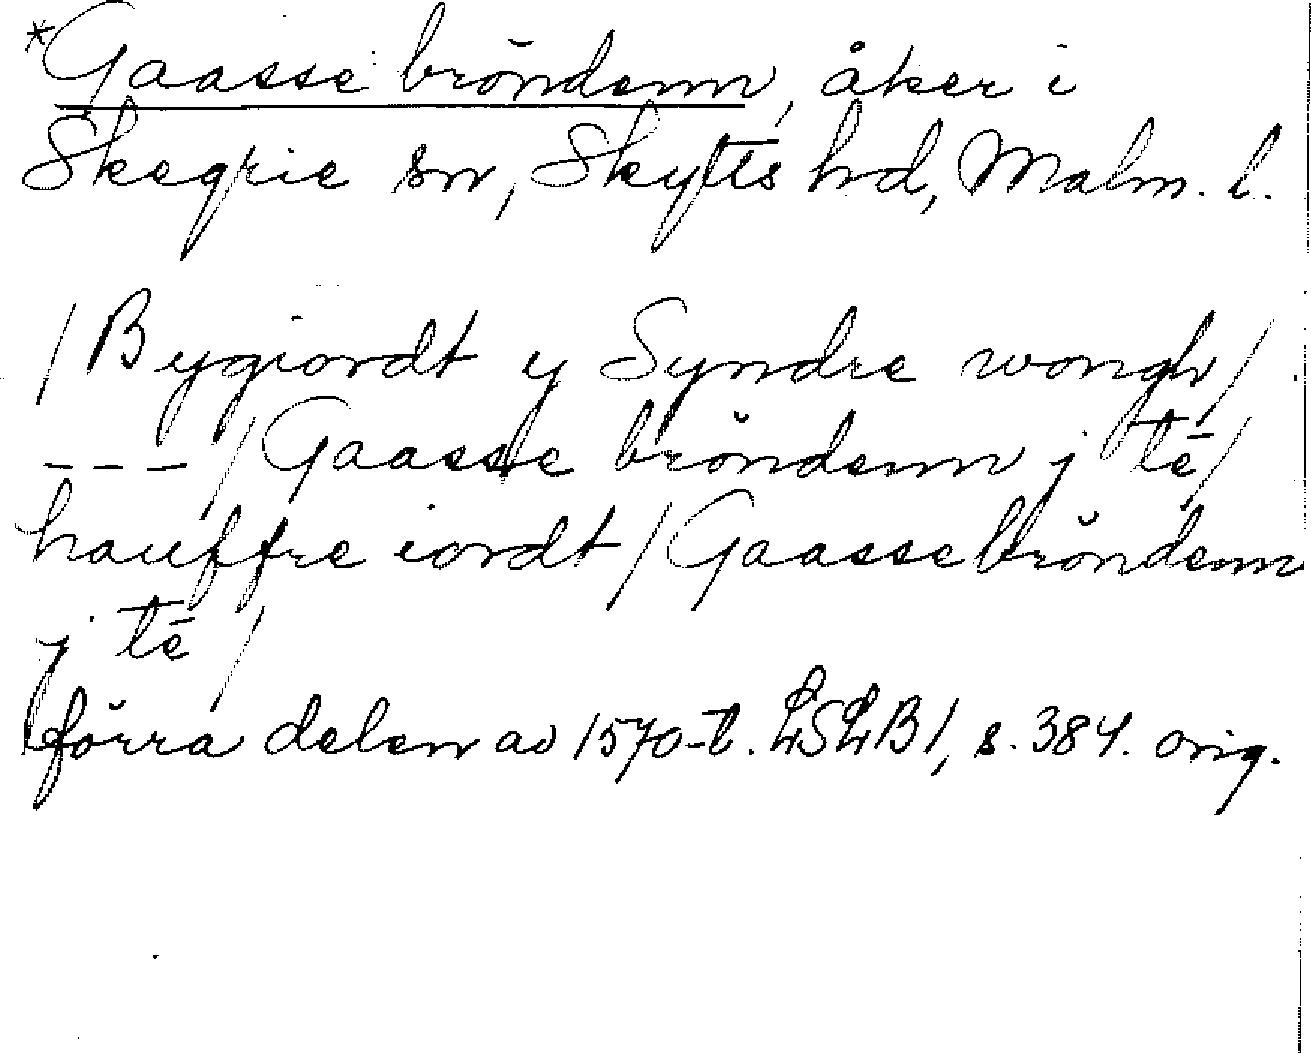 *Gaasse bröndenn, åker i
Skegrie sn, Skytts hd, Malm. l.
/Bygiordt y Syndre wongh/
---/Gaasse bröndenn j tē/
hauffre iordt/Gaassebröndenn
j tē/
förra delen av 1570-t. LSLB1, s. 384. orig.